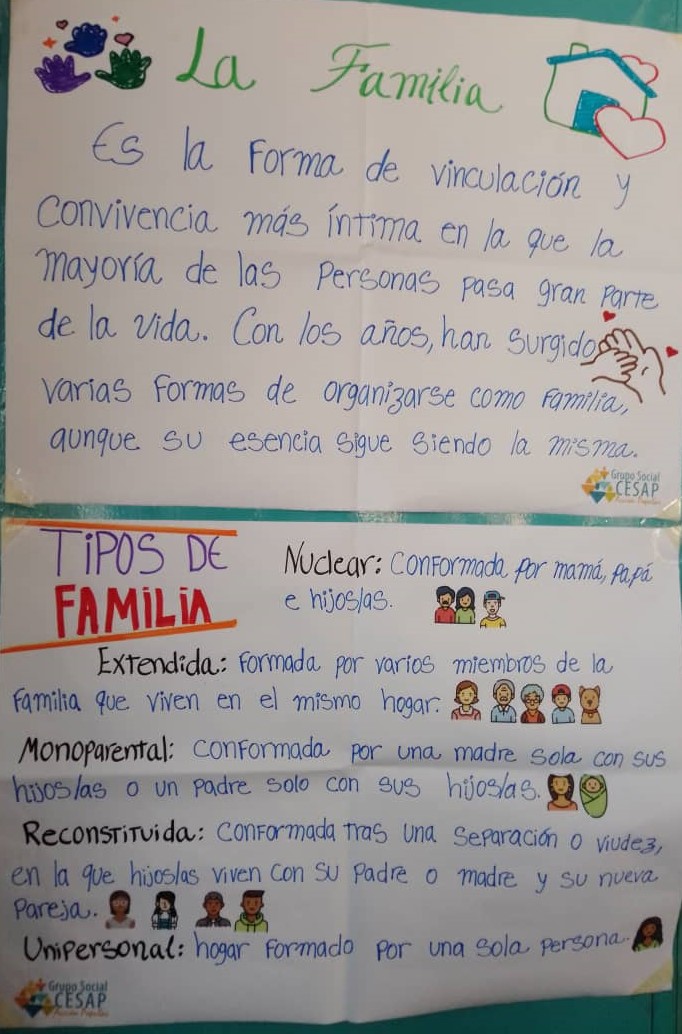 La Familia
Es la forma de vinculación y
convivencia más íntima en la que la
mayoría de las personas pasa gran parte
de la vida. Con los años, han surgido
varias formas de organizarse como familia,
aunque su esencia sigue siendo la misma.
Grupo Social
CESAP
Acción Popular
TIPOS DE
FAMILIA
Nuclear: Conformada por mamá, papá
e hijos/as.
Extendida: Formada por varios miembros de la
familia que viven en el mismo hogar.
Monoparental: conformada por una madre sola con sus
hijos/as o un padre solo con sus hijos/as.
Reconstituida: conformada tras una separación o viudez,
en la que hijos/as viven con su padre o madre y su nueva
pareja.
Unipersonal: hogar formado por una sola persona.
Grupo Social
CESAP
Acción Popular